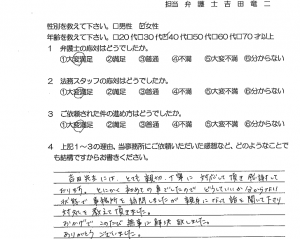 担当 弁護士 吉田竜二
性別を教えて下さい。 □男性 ☑女性
年齢を教えて下さい。 □20代□30代☑40代□50代□60代□70才以上
1 弁護士の応対はどうでしたか。
①大変満足 ②満足 ③普通 ④不満 ⑤大変不満 ⑥分からない
2 法務スタッフの応対はどうでしたか。
①大変満足 ②満足 ③普通 ④不満 ⑤大変不満 ⑥分からない
3 ご依頼された件の進め方はどうでしたか。
①大変満足 ②満足 ③普通 ④不満 ⑤大変不満 ⑥分からない
4 上記1~3の理由、当事務所にご依頼いただいた感想など、どのようなことで
も結構ですからお書きください。
吉田先生には、とても親切、丁寧に対応して頂き感謝して
おります。とにかく初めての事でしたのでどうしていいか分からない
状態で事務所を訪問しましたが親身になって話を聞いて下さり
対応も教えて頂きました。
おかげでこのたび無事に解決致しました。
ありがとうございました。